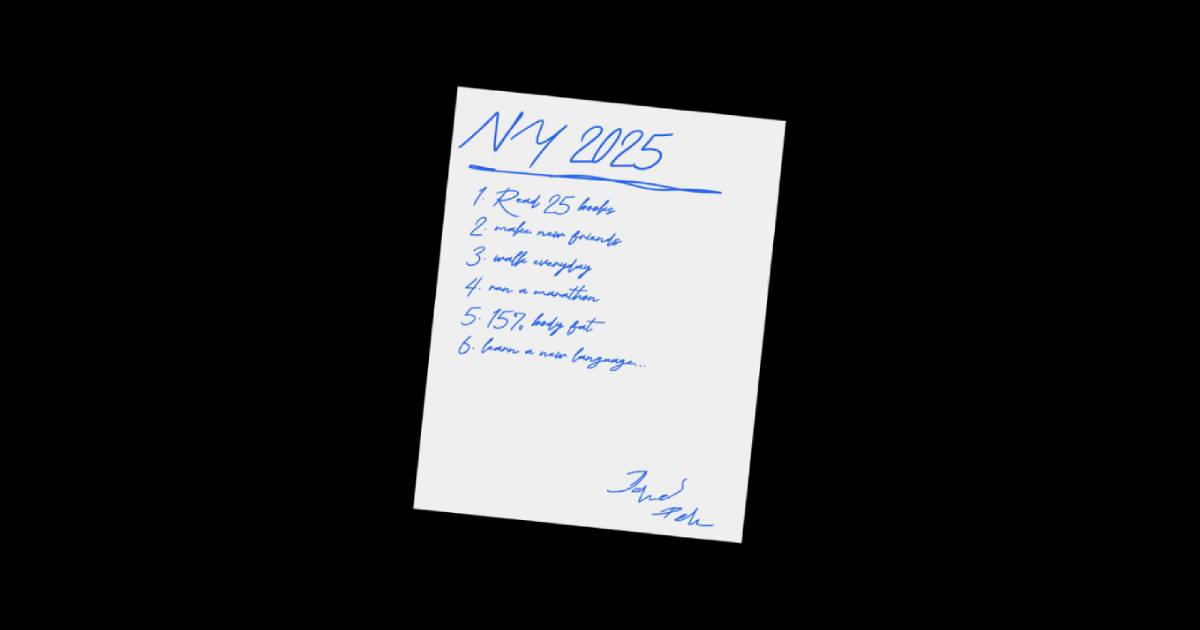 NY 2025
1. Read 25 books
2. make new friends
3. walk everyday
4. run a marathon
5. 15% body fat
6. learn a new language...